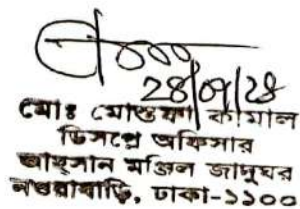 28/07/28
মোঃ মোস্তফা কামাল
ডিসপ্লে অফিসার
আহসান মঞ্জিল জাদুঘর
নওয়াবাড়ি, ঢাকা-১১০০